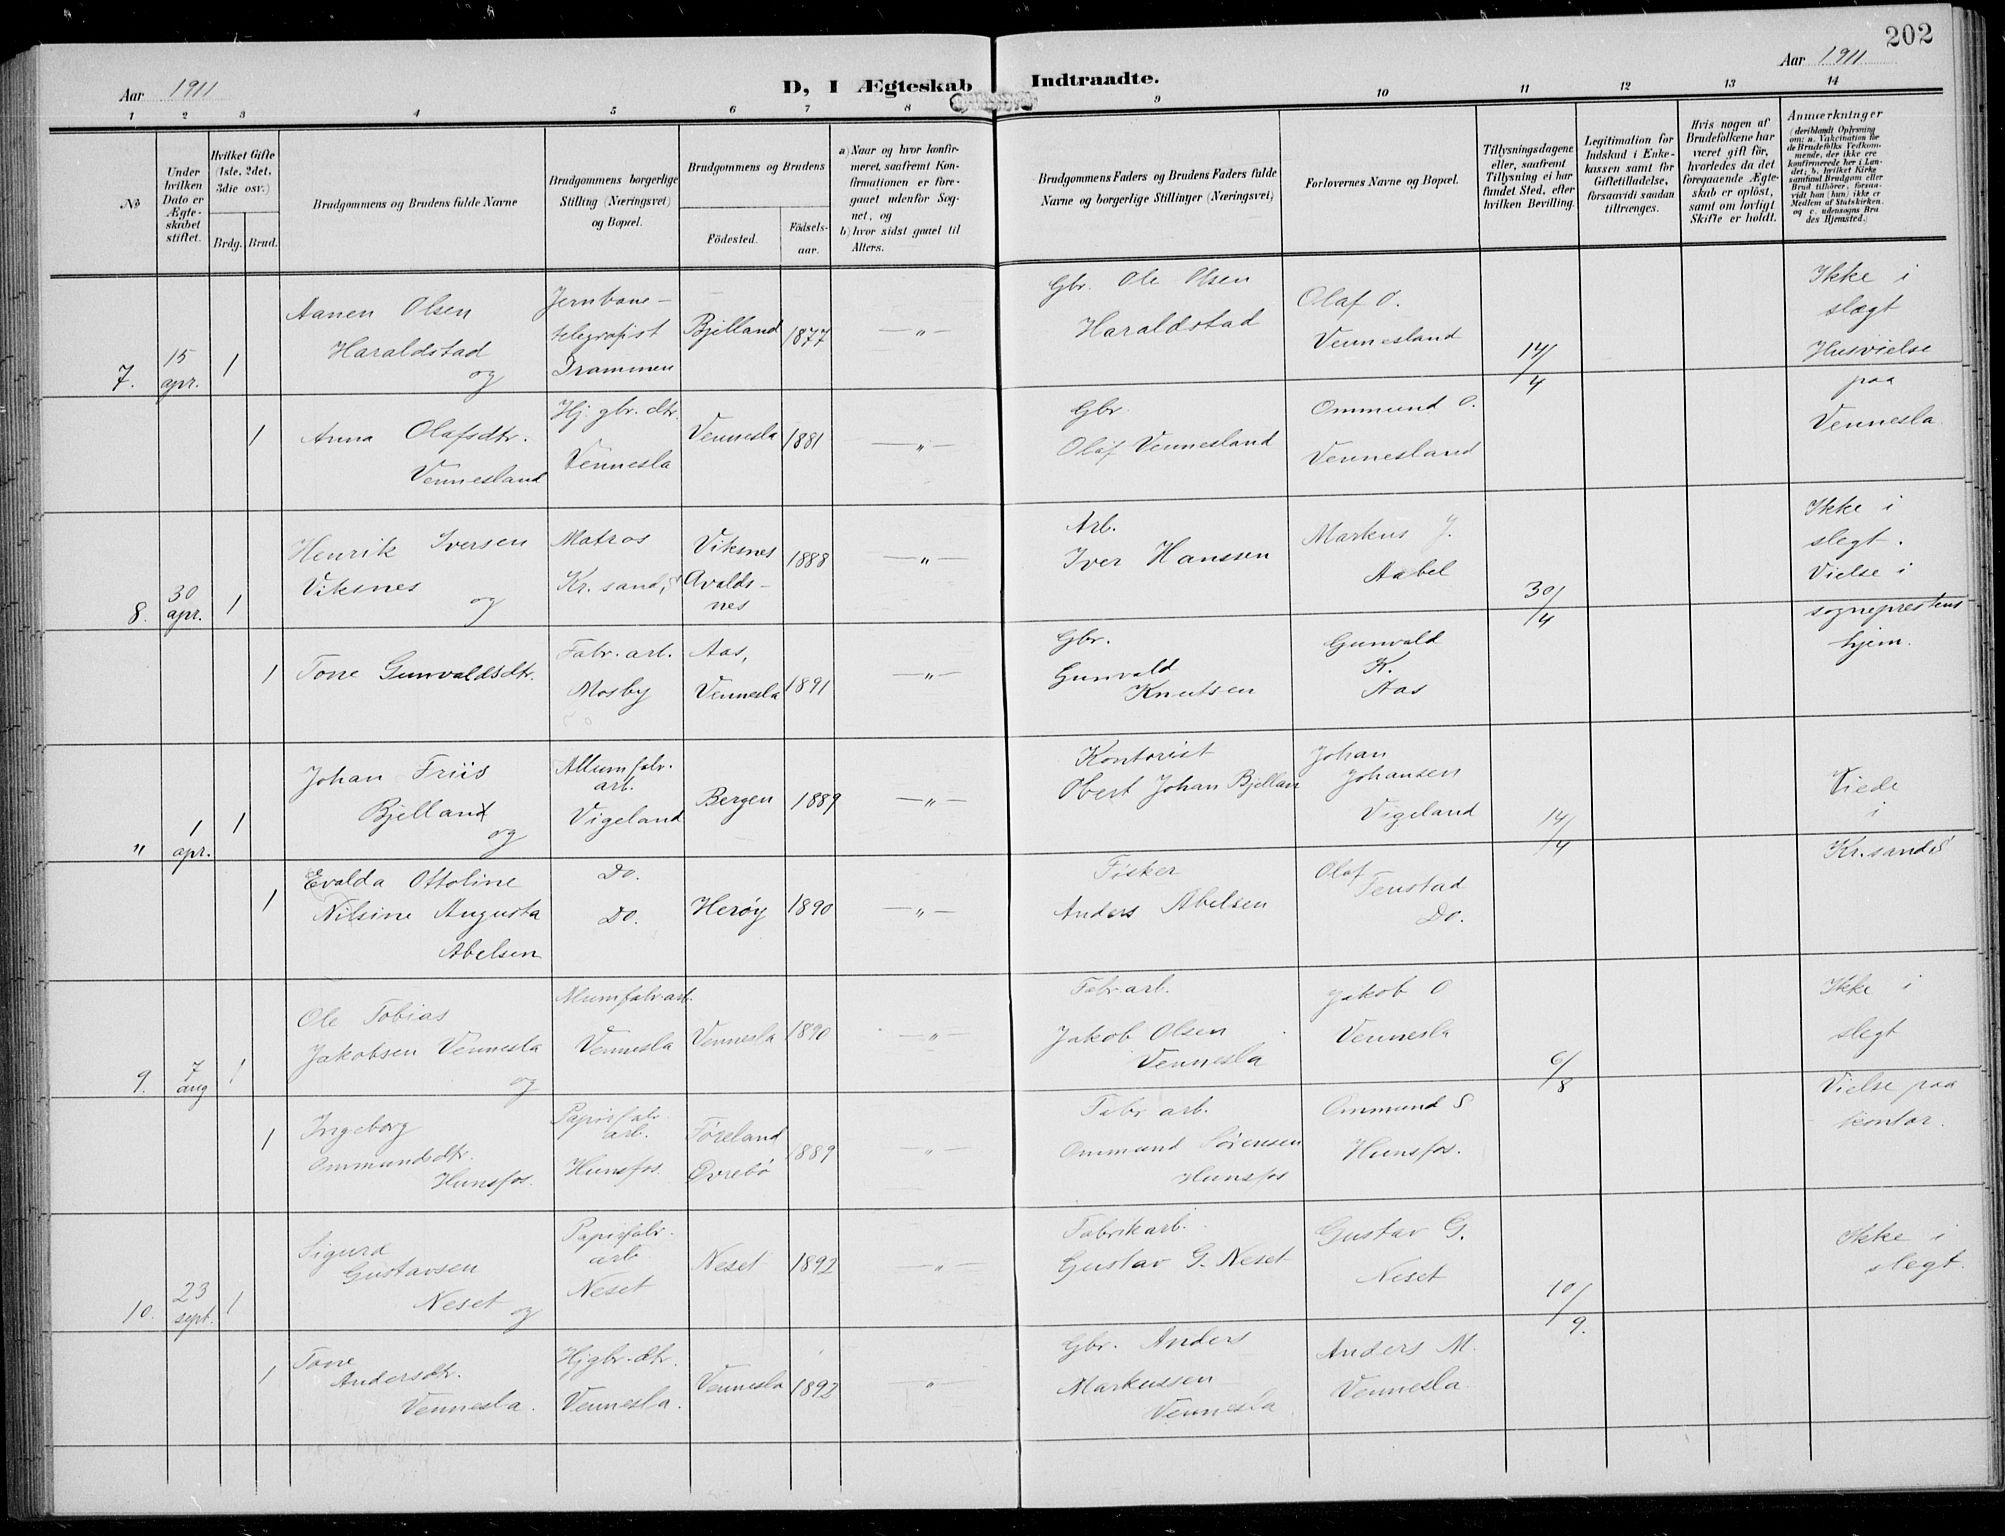 202
Aar 1911
D, I Ægteskab Indtraadte.
Aar 1911
1 2 3 4 5 6 7 8 9 10 11 12 13 14
№
Under hvilken Dato er Ægteskabet stiftet.
Hvilket Gifte (1ste, 2det, 3die osv.)
Brdg. Brud.
Brudgommens og Brudens fulde Navne
Brudgommens borgerlige Stilling (Næringsvei) og Bopæl.
Brudgommens og Brudens
Födested.
Födsels-aar.
a) Naar og hvor konfirmeret, saafremt Konfirmationen er foregaaet udenför Sognet, og
b) hvor sidst gaaet til Alters.
Brudgommens Faders og Brudens Faders fulde Navne og borgerlige Stillinger (Næringsvei)
Forlovernes Navne og Bopæl.
Tillysningsdagene eller, saafremt Tillysning ei har fundet Sted, efter hvilken Bevilling.
Legitimation for Indskud i Enkekassen samt for Giftetilladelse, forsaavidt saadan tiltrænges.
Hvis nogen af Brudefolkene har været gift för, hvorledes da det foregaaende Ægteskab er oplöst, samt om lovligt Skifte er holdt.
Anmærkninger
(deriblandt Oplysning om: a. Vakcination for de Brudefolks Vedkommende, der ikke ere konfirmerede her i Landet; b. hvilket Kirkesamfund Brudgom eller Brud tilhörer, forsaavidt han (hun) ikke er Medlem af Statskirken, og c. udensogns Brudes Hjemsted.)
7. 15 apr. 1
Aanen Olsen
Haraldstad
og
Jernbane-
telegrafist
Drammen
Bjelland 1877 —"—
Gbr. Ole Olsen
Haraldstad
Olaf O.
Vennesland
14/4
Ikke i
slægt
Husvielse
paa
Vennesla
1
Anna Olafsdtr.
Vennesland
Hj. gbr. dtr.
Vennesla
Vennesla 1881 —"—
Gbr.
Olaf Vennesland
Ommund O.
Vennesland
8. 30 apr. 1
Henrik Iversen
Viksnes
og
Matros
Kr.sand,
Viksnes
Avalds-
nes
1888 —"—
Arb.
Iver Hanssen
Markus J.
Aabel
30/4
Ikke i
slegt.
Vielse i
sogneprestens
hjem.
1
Tone Gunvaldsdtr.
Fabr. arb.
Mosby
Aas,
Vennesla
1891 —"—
Gbr.
Gunvald
Knutsen
Gunvald
K.
Aas
" 1 apr. 1
Johan Friis
Bjelland
og
Allumfabr.
arb.
Vigeland
Bergen 1889 —"—
Kontorist
Obert Johan Bjellan
Johan
Johansen
Vigeland
14/4
Viede
i
Kr.sand
1
Evalda Ottoline
Nilsine Augusta
Abelsen
Do.
Do.
Herøy 1890 —"—
Fisker
Anders Abelsen
Olaf
Tenstad
Do.
9. 7 aug 1
Ole Tobias
Jakobsen Vennesla
og
Alumfabr.arb.
Vennesla
Vennesla 1890 —"—
Fabr.arb.
Jakob Olsen
Vennesla
Jakob O
Vennesla
6/8
Ikke i
slegt
Vielse paa
kontor.
1
Ingeborg
Ommundsdtr.
Hunsfos.
Papirfabr.
arb.
Hunsfos.
Føreland
Øvrebö
1889 —"—
Fabr arb.
Ommund Sørensen
Hunsfos
Ommund S
Hunsfos.
10. 23 sept. 1
Sigurd
Gustavsen
Neset og
Papirfabr.
arb.
Neset
Neset 1892 —"—
Fabrikarb.
Gustav G. Neset
Gustav G.
Neset
10/9.
Ikke i
slegt.
1
Tone
Andersdtr.
Vennesla.
Hjgbr. dtr.
Vennesla.
Vennesla 1892 "
Gbr. Anders
Markussen
Vennesla
Anders M.
Vennesla